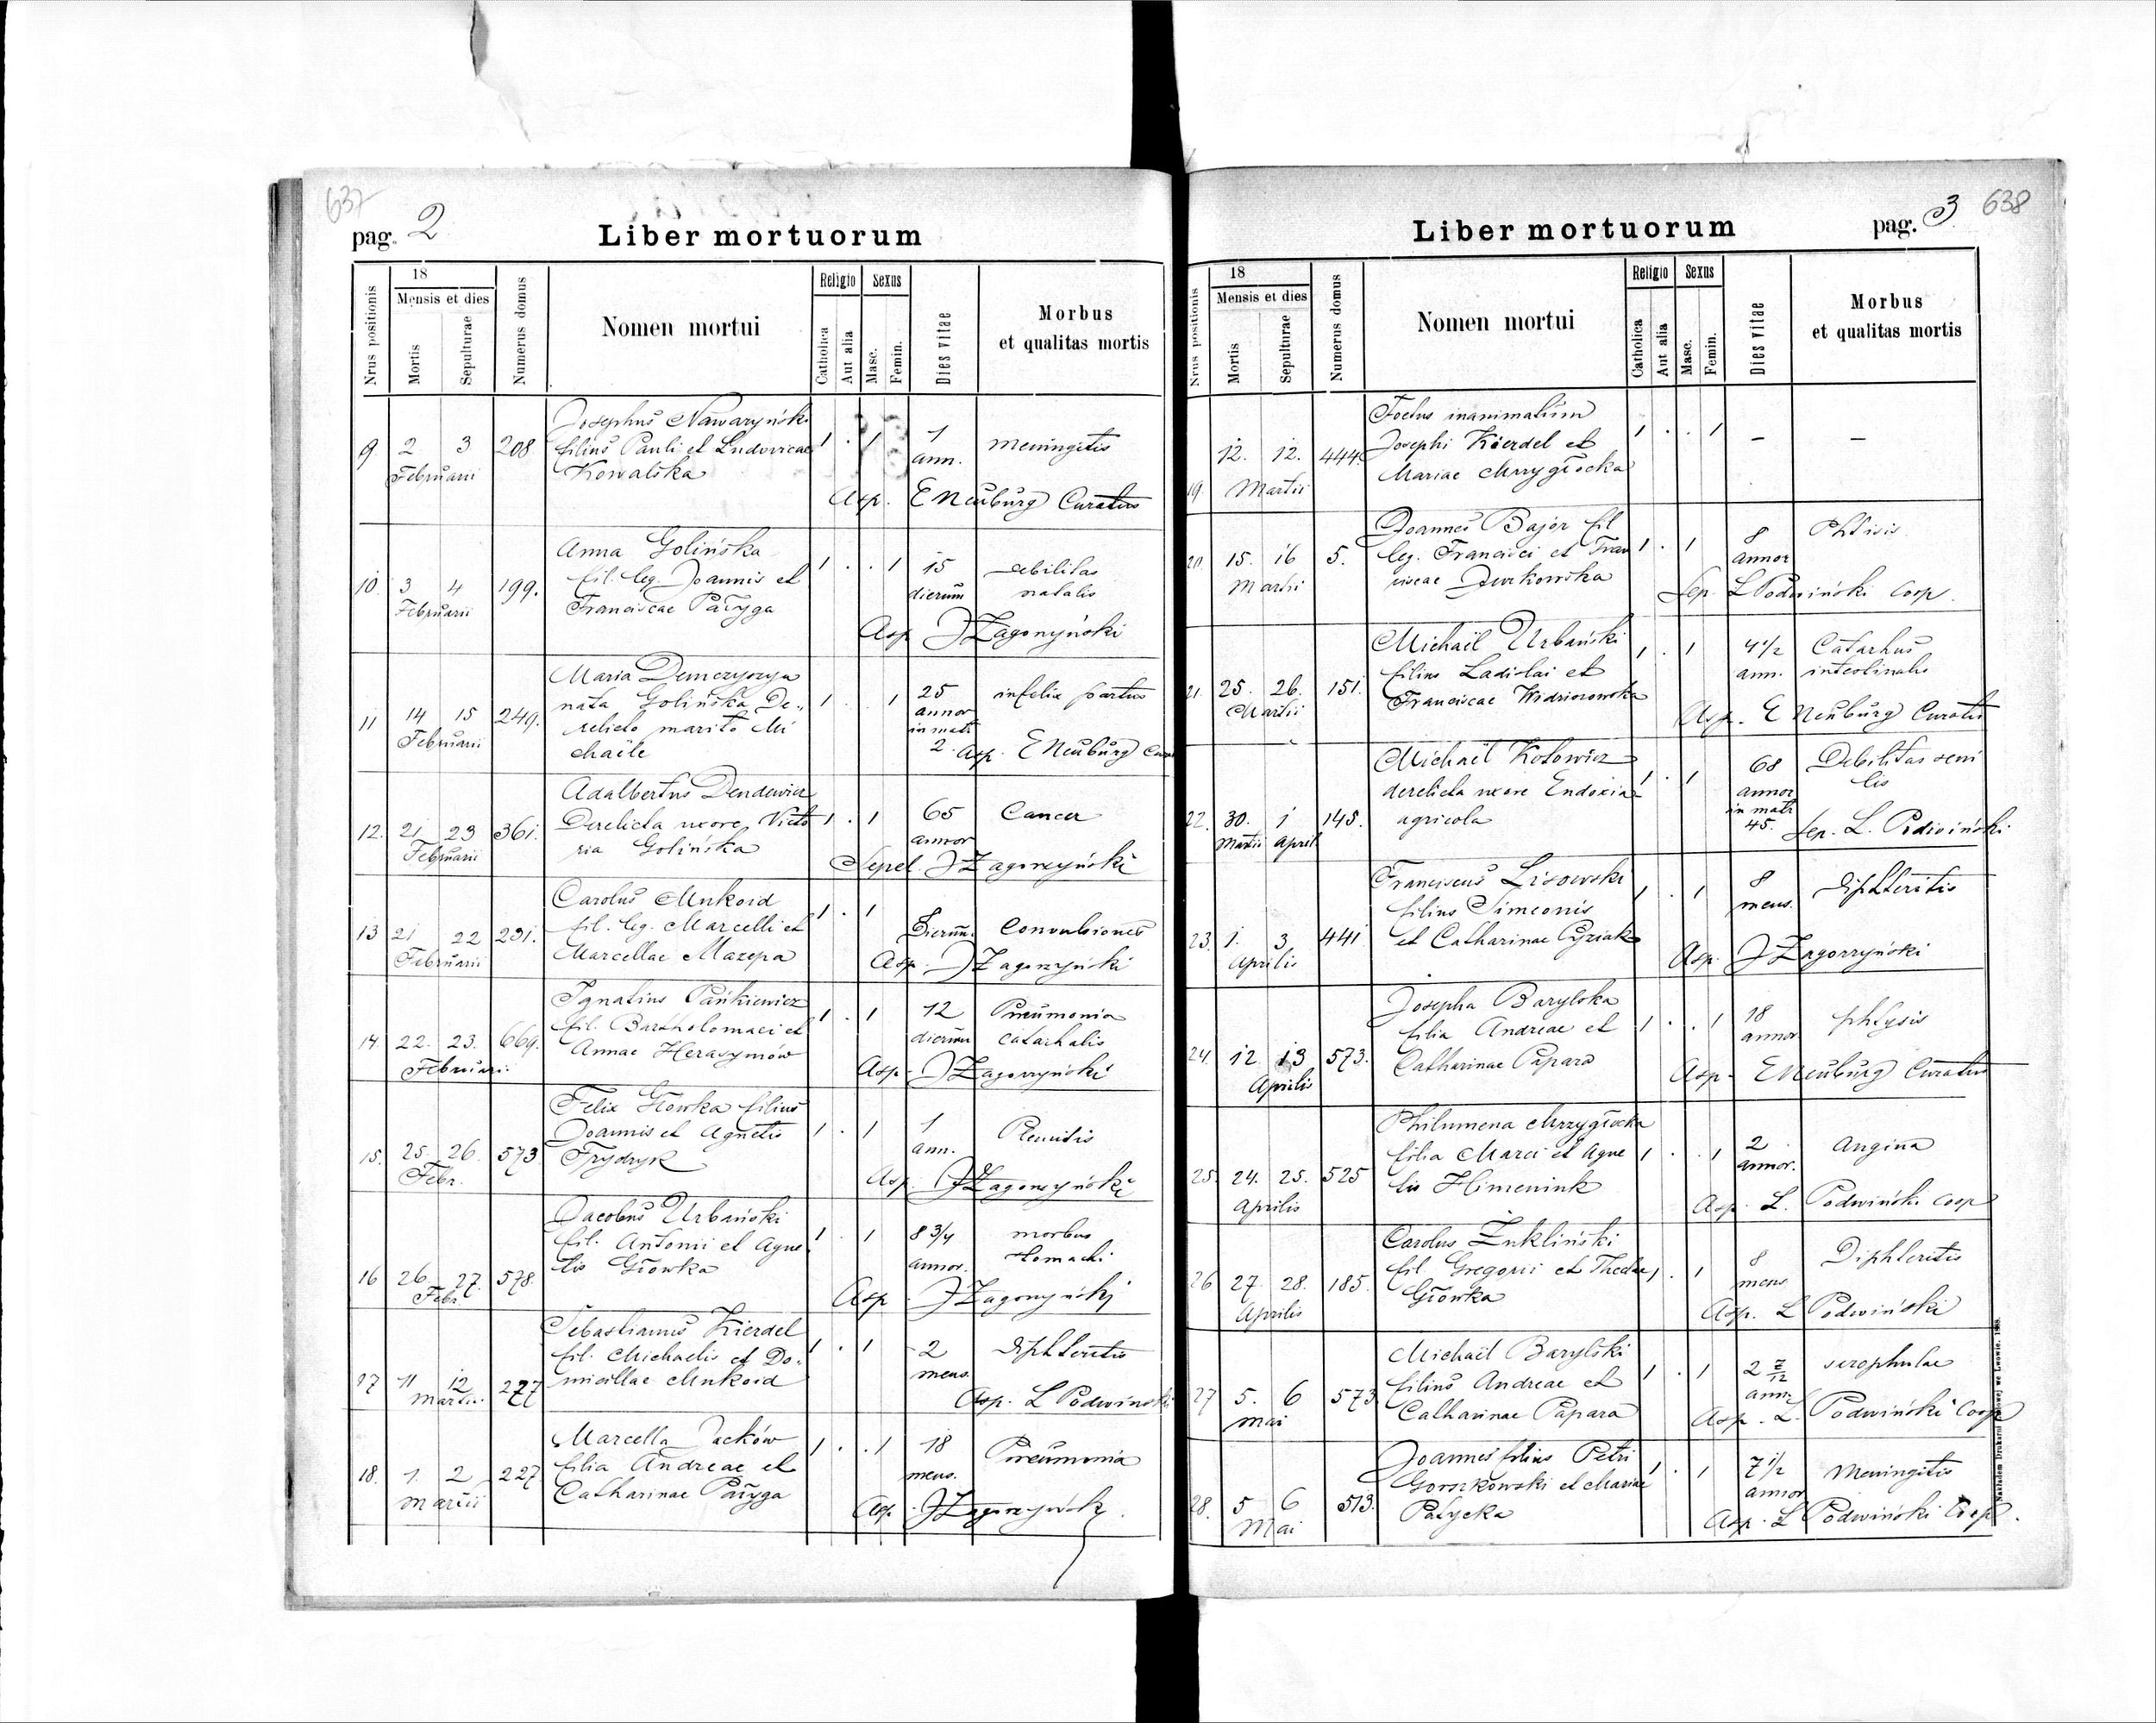 637
pag. 2
Liber mortuorum
Nrus positionis
18
Mensis et dies
Mortis
Sepulturae
Numerus domus
Nomen mortui
Religio
Catholica
Aut alia
Sexus
Masc.
Femin.
Dies vitae
Morbus
et qualitas mortis
Josephus Nawaryński
9 2 3 208 filius Pauli et Ludovicae 1 . 1 1 meningitis
Februarii Kowalska ann.
Asp. E Neuburg Curatus
Anna Golińska
10. 3 4 199. fil. leg. Joannis et 1 . . 1 15 debilitas
Februarii Franciscae Pałyga dierum natalis
Asp J Zagorzyński
Maria Demczyszyn
nata Golińska De- 1 . 1 25 infelix partus
11 14 15 249. relicto marito Mi annor
Februarii chaele in matr
2. Asp. E Neuburg Cura
Adalbertus Dendewicz
12. 21 23 361. Derelicta uxore Victo 1 . 1 65 Cancer
Februarii ria Golińska annor
Sepel. J Zagorzyński
Carolus Mukoid
13 21 22 231. fil. leg. Marcelli et 1 . 1 Dierum. Convulsiones
Februarii Marcellae Mazepa
Asp. J Zagorzyński
Ignatius Pańkiewicz
14. 22. 23. 669. fil. Bartholomaei et 1 . 1 12 Pneumonia
Februarii. Annae Herasymów dierum catarhalis
Asp. J Zagorzyński
Felix Głowka filius
15. 25. 26. 573 Joannis et Agnetis 1 . 1 1 Pleuritis
Febr. Frydryk ann.
Asp. J Zagorzyński
Jacobus Urbański
16 26 27. 578. fil. Antonii et Agne 1 . 1 8 3/4 morbus
Febr. tis Głowka annor. stomachi
Asp J Zagorzyński
Sebastianus Kierdel
17 11 12 277 fil. Michaelis et Do- 1 . 1 2 Diphteritis
Martii. micillae Mukoid mens.
Asp. L Podwiński
Marcella Jacków
18. 1. 2 227 filia Andreae et 1 . . 1 18 Pneumonia
Marcii Catharinae Pałyga mens.
Asp. J Zagorzyński.
638
Liber mortuorum
pag. 3
Nrus positionis
18
Mensis et dies
Mortis
Sepulturae
Numerus domus
Nomen mortui
Religio
Catholica
Aut alia
Sexus
Masc.
Femin.
Dies vitae
Morbus
et qualitas mortis
Foetus inanimatum
12. 12. 444. Josephi Kierdel et 1 . . 1 – –
19. Martii Mariae Mrzygłocka
Joannes Bajor fil
20. 15. 16 5. leg. Francisci et Fran 1 . 1 8 Phtisis
Martii ciscae Jurkowska annor
Sep. L Podwiński Coop.
Michaël Urbański
21. 25. 26. 151. filius Ladislai et 1 . 1 4 1/2 Catarhus
Martii Franciscae ann. intestinalis
Asp. E Neuburg Curatus
Michaël Kotowicz
derelicta uxore Eudoxia 1 . 1 68 Debilitas seni
22. 30. 1 145. agricola annor lis
Martii April. in matr
45. Sep. L. Podwiński
Franciscus Lisowski
filius Simeonis 1 . 1 8 Diphteritis
23. 1. 3 441 et Catharinae Pyziak mens.
Aprilis
Asp. J Zagorzyński
Josepha Barylska
filia Andreae et 1 . . 1 18 phtysis
24. 12 13 573. Catharinae Papara annor
Aprilis
Asp. E Neuburg Curatus
Philumena Mrzygłocka
filia Marci et Agne 1 . . 1 2 Angina
25. 24. 25. 525 tis annor.
Aprilis
Asp. L. Podwiński Coop
Carolus Żukliński
26 27. 28. 185. fil Gregorii et Theclae 1 . 1 8 Diphteritis
Aprilis Głowka mens
Asp. L Podwiński
Michaël Barylski
27 5. 6 573 filius Andreae et 1 . 1 2 7/12 scrophulae
Mai Catharinae Papara ann.
Asp. L. Podwiński Coop
Joannes filius Petri
28. 5 6 513. Gorszkowski et Mariae 1 . 1 7 1/2 Meningitis
Mai Patycka annor
Asp. L Podwiński Coop.